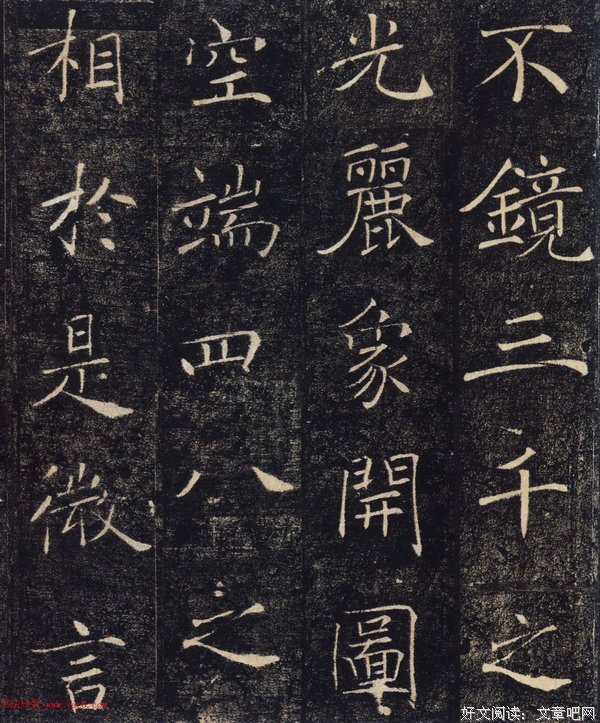 不鏡三千之
光麗象開圖
空端四八之
相於是微言
好文阅读：文章吧网